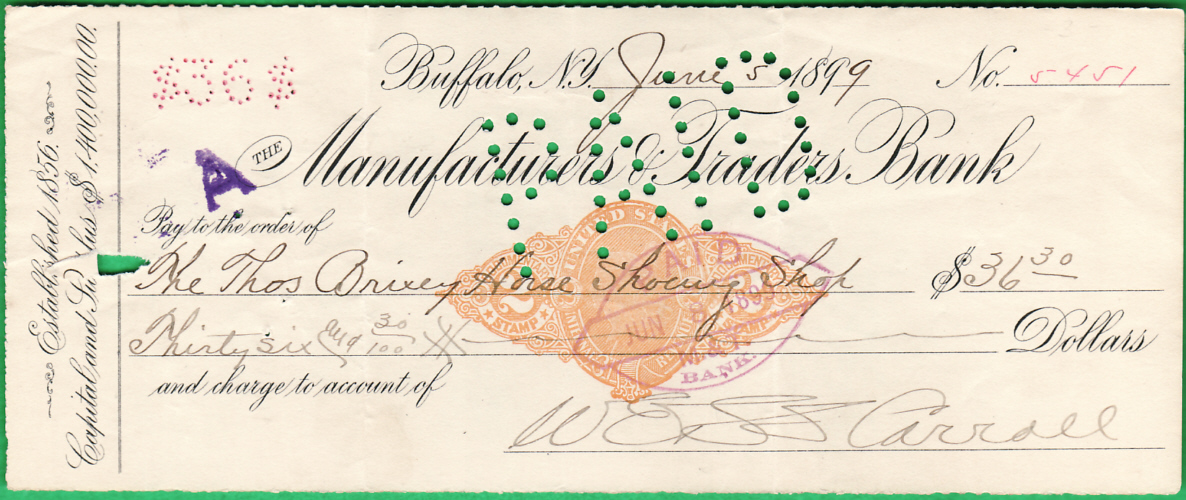 Established 1856.
Capital and Su plus $1,400,000.00.
$36$
Buffalo, N.Y. June 5 1899 No. 5451
A
THE Manufacturers & Traders Bank
Pay to the order of
The Thos Brixey Horse Shoeing Shop $36 30
Thirty six and 30/100 Dollars
and charge to account of
Carroll
UNITED STA
2
STAMP
PAID
JUN
BANK.